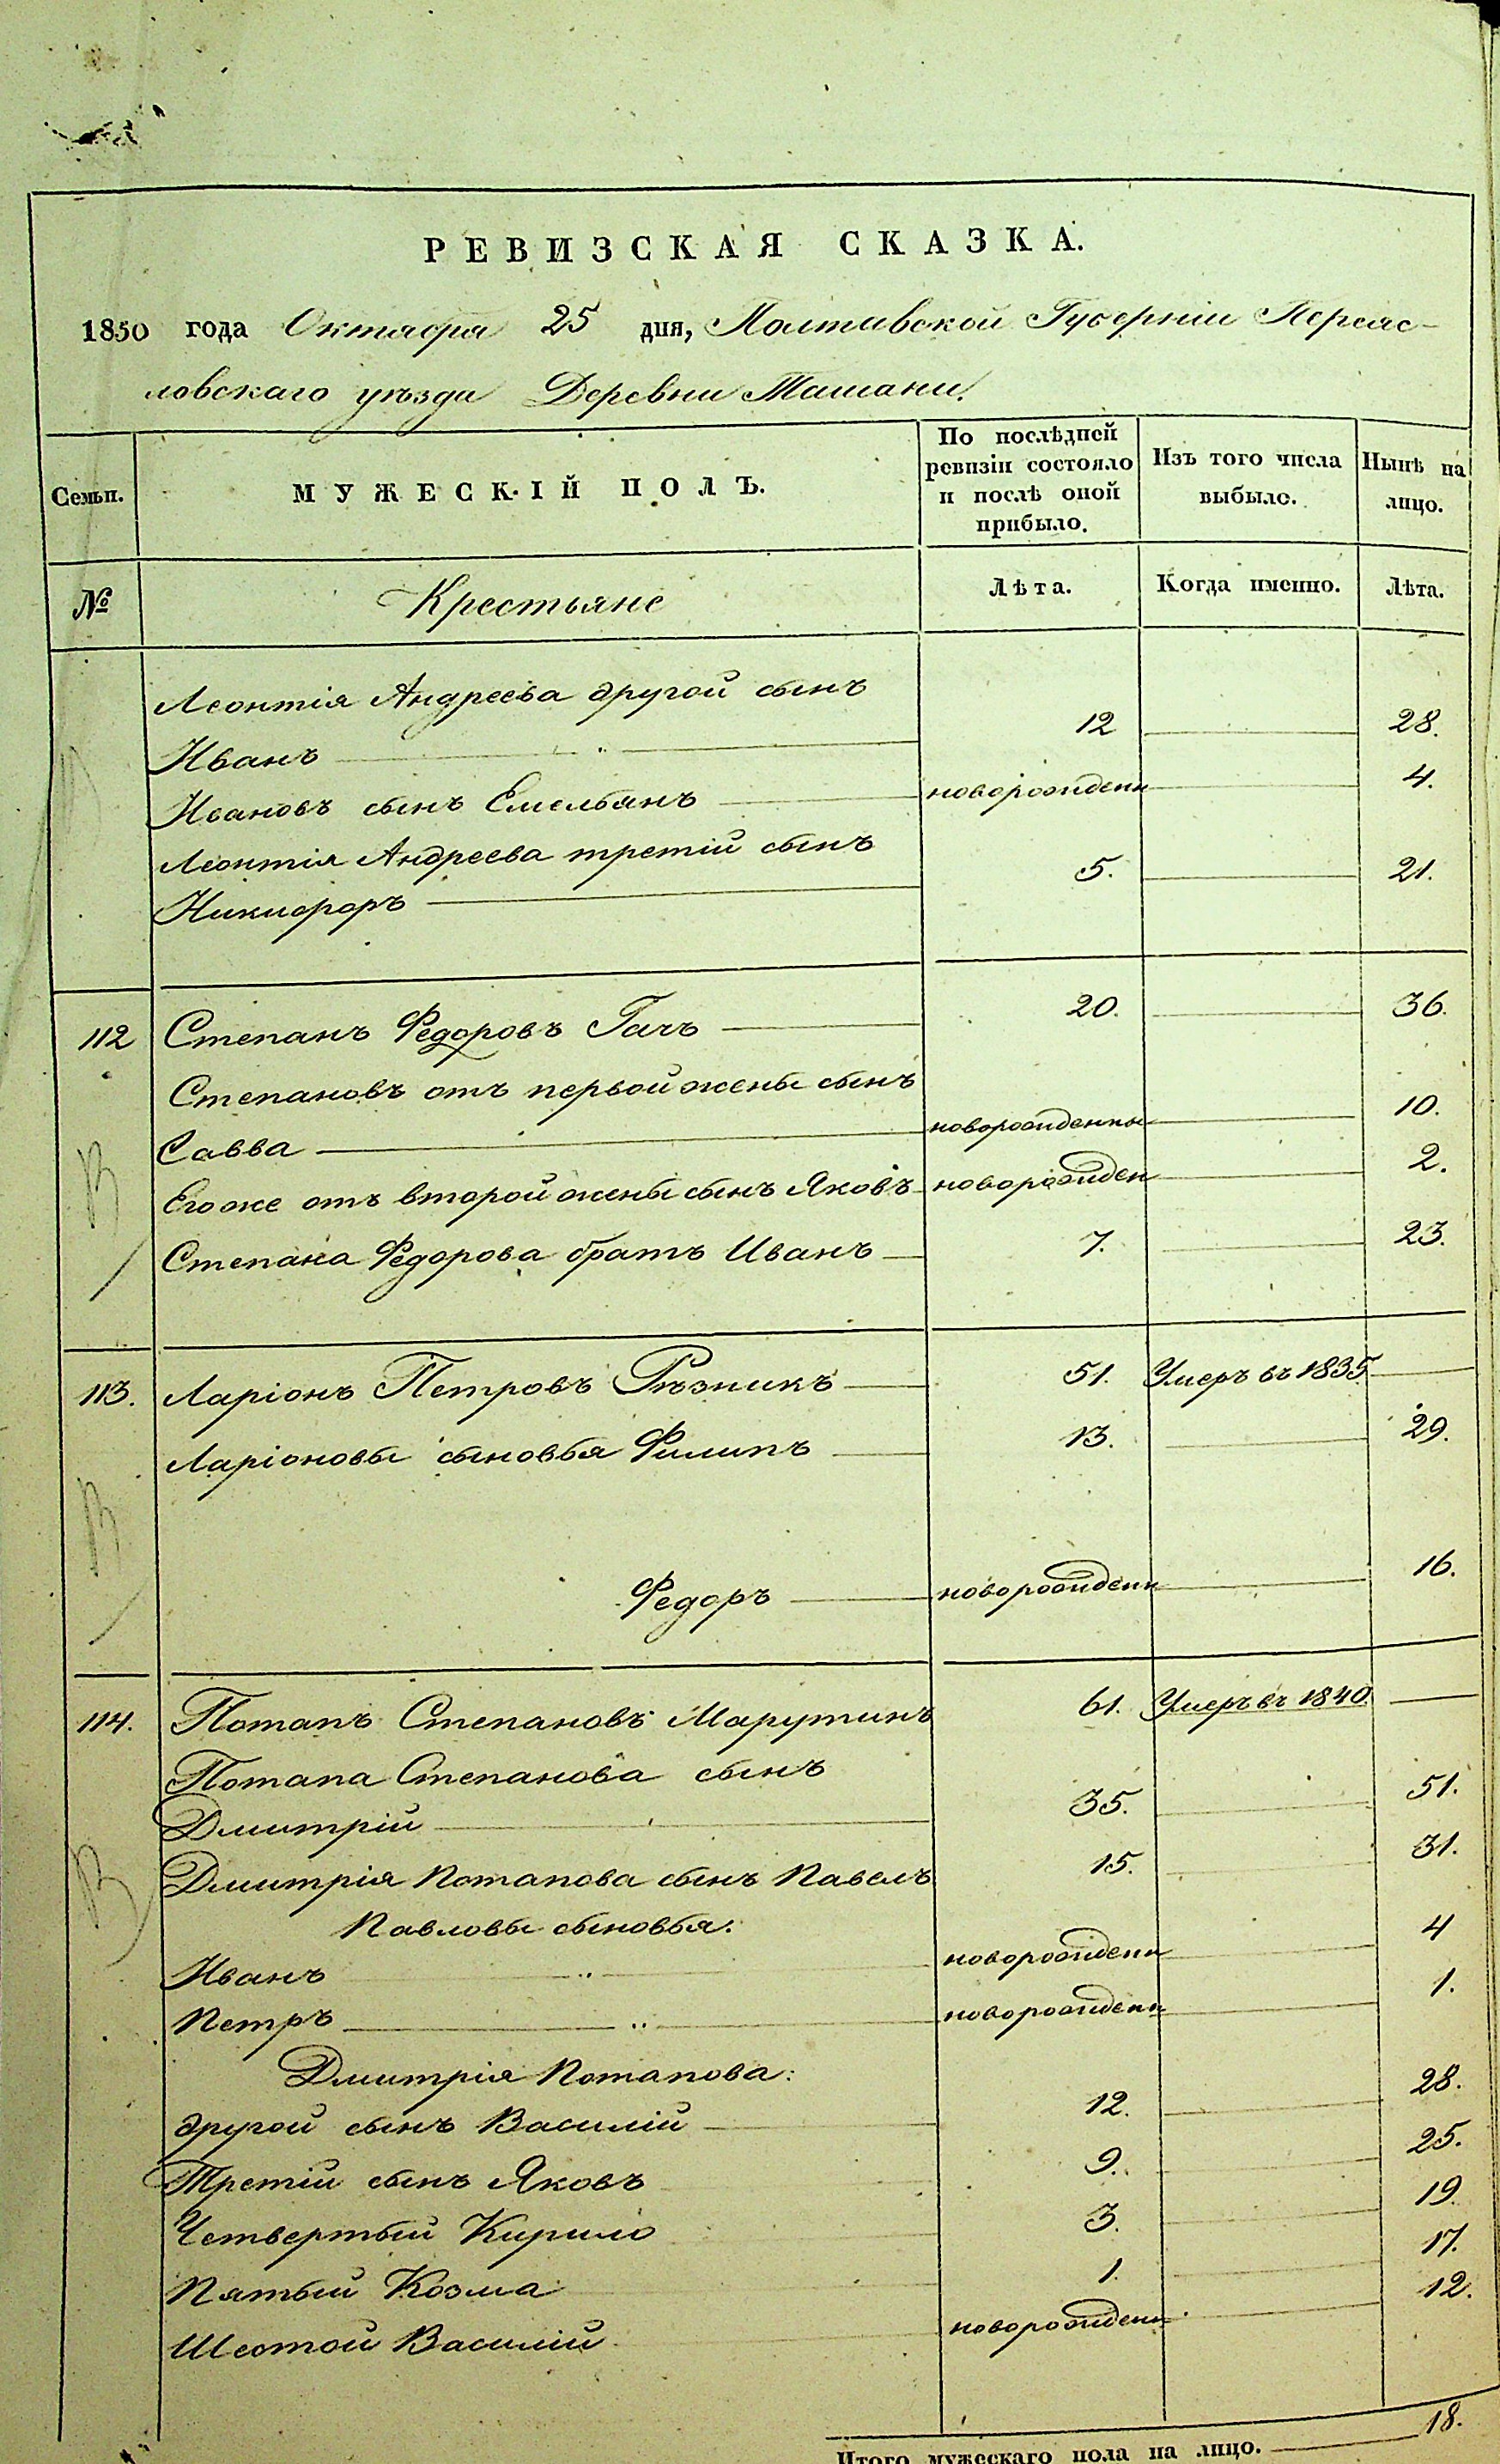 РЕВИЗСКАЯ СКАЗКА.
1850 года Октября 25 дня, Полтавской Губернiи Переяс-
ловскаго уѣзда Деревни Ташани.
Семьи. МУЖЕСКIЙ ПОЛЪ. По послѣдней ревизiи состояло и послѣ оной прибыло. Изъ того числа выбыло. Нынѣ на лицо.
№ Крестьяне Лѣта. Когда именно. Лѣта.
Леонтiя Андреева другой сынъ
Иванъ 12 28.
Ивановъ сынъ Емельянъ новорожденн 4.
Леонтiя Андреева третiй сынъ
Никифоръ 5. 21.
112 Степанъ Федоровъ Гачъ 20. 36.
Степановъ отъ первой жены сынъ
Савва новорожденны 10.
Его же отъ второй жены сынъ Яковъ новорожден 2.
Степана Федорова братъ Иванъ 7. 23.
113. Ларiонъ Петровъ Рѣзникъ 51. Умеръ въ 1835
Ларiоновы сыновья Филипъ 13. 29.
Федоръ новорожденн 16.
114. Потапъ Степановъ Марутинъ 61. Умеръ въ 1840
Потапа Степанова сынъ
Дмитрiй 35. 51.
Дмитрiя Потапова сынъ Павелъ 15. 31.
Павловы сыновья:
Иванъ новорожденн 4
Петръ новорожденн 1.
Дмитрiя Потапова:
другой сынъ Василiй 12. 28.
Третiй сынъ Яковъ 9. 25.
Четвертый Кирило 3. 19
Пятый Козма 1. 17.
Шестой Василiй новорожденн 12.
Итого мужескаго пола на лицо. 18.